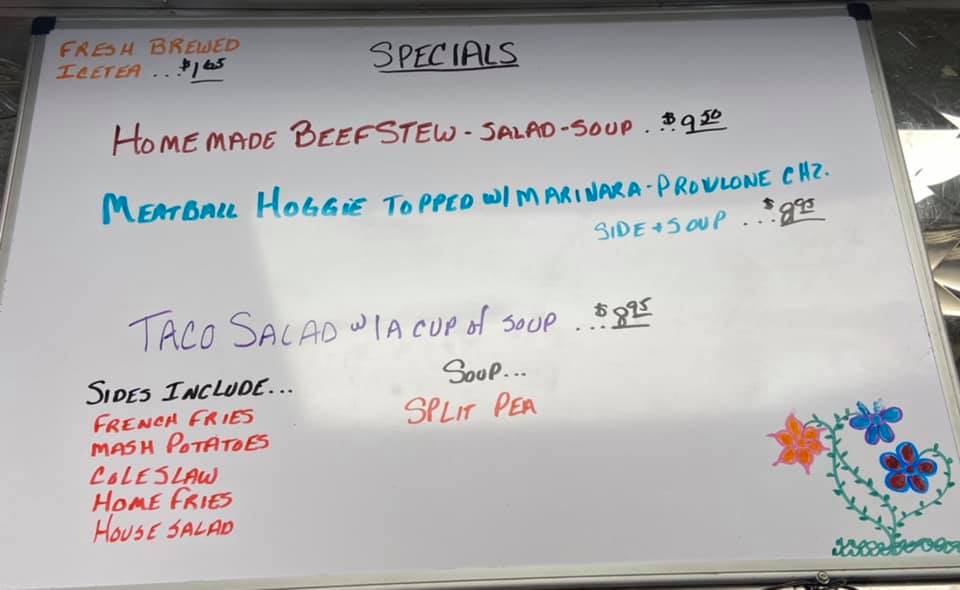 FRESH BREWED
ICETEA ... $1.65
SPECIALS
HOMEMADE BEEFSTEW - SALAD - SOUP ... $9.50
MEATBALL HOGGIE TOPPED W/ MARINARA - PROVLONE CHZ.
SIDE + SOUP ... $8.95
TACO SALAD W/ A CUP of SOUP ... $8.95
SIDES INCLUDE...
FRENCH FRIES
MASH POTATOES
COLESLAW
HOME FRIES
HOUSE SALAD
SOUP...
SPLIT PEA